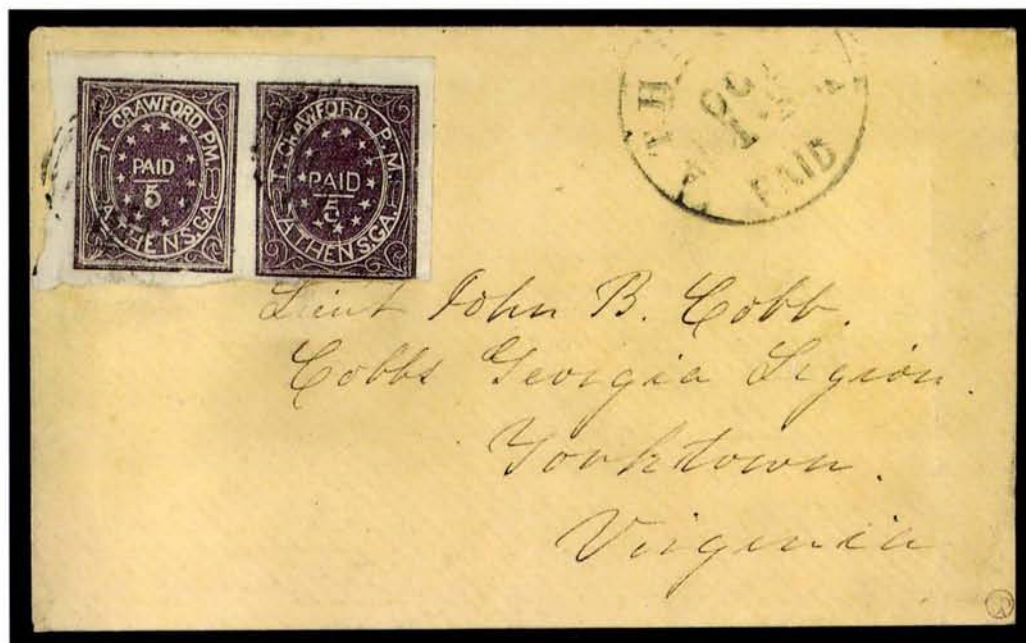 T. CRAWFORD, P.M.
PAID
5
ATHENS, GA.
T. CRAWFORD, P.M.
PAID
5
ATHENS, GA.
PAID
Lieut John B. Cobb.
Cobbs Georgia Legion.
Yorktown.
Virginia